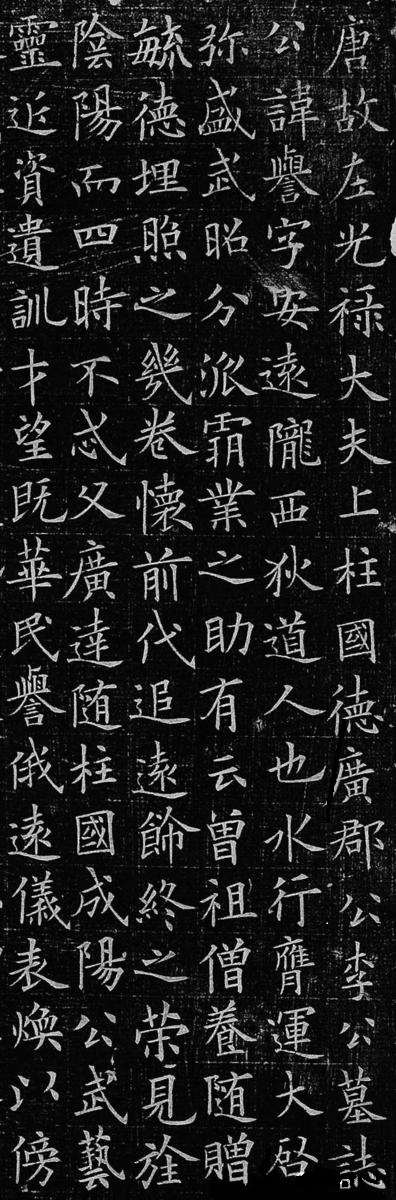 唐故左光祿大夫上柱國德廣郡公李公墓誌
公諱譽字安遠隴西狄道人也水行膺運大啓
弥盛武昭分派霸業之助有云曾祖僧養随贈
毓德埋照之幾卷懷前代追遠飾終之荣見旌
陰陽而四時不忒父廣達随柱國成陽公武藝
靈近資遺訓才望既華民譽俄遠儀表煥以傍